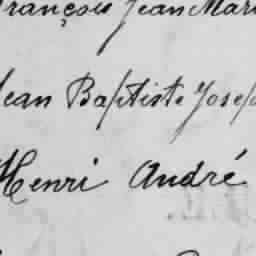 François Jean Mari
Jean Baptiste Josep
Henri André